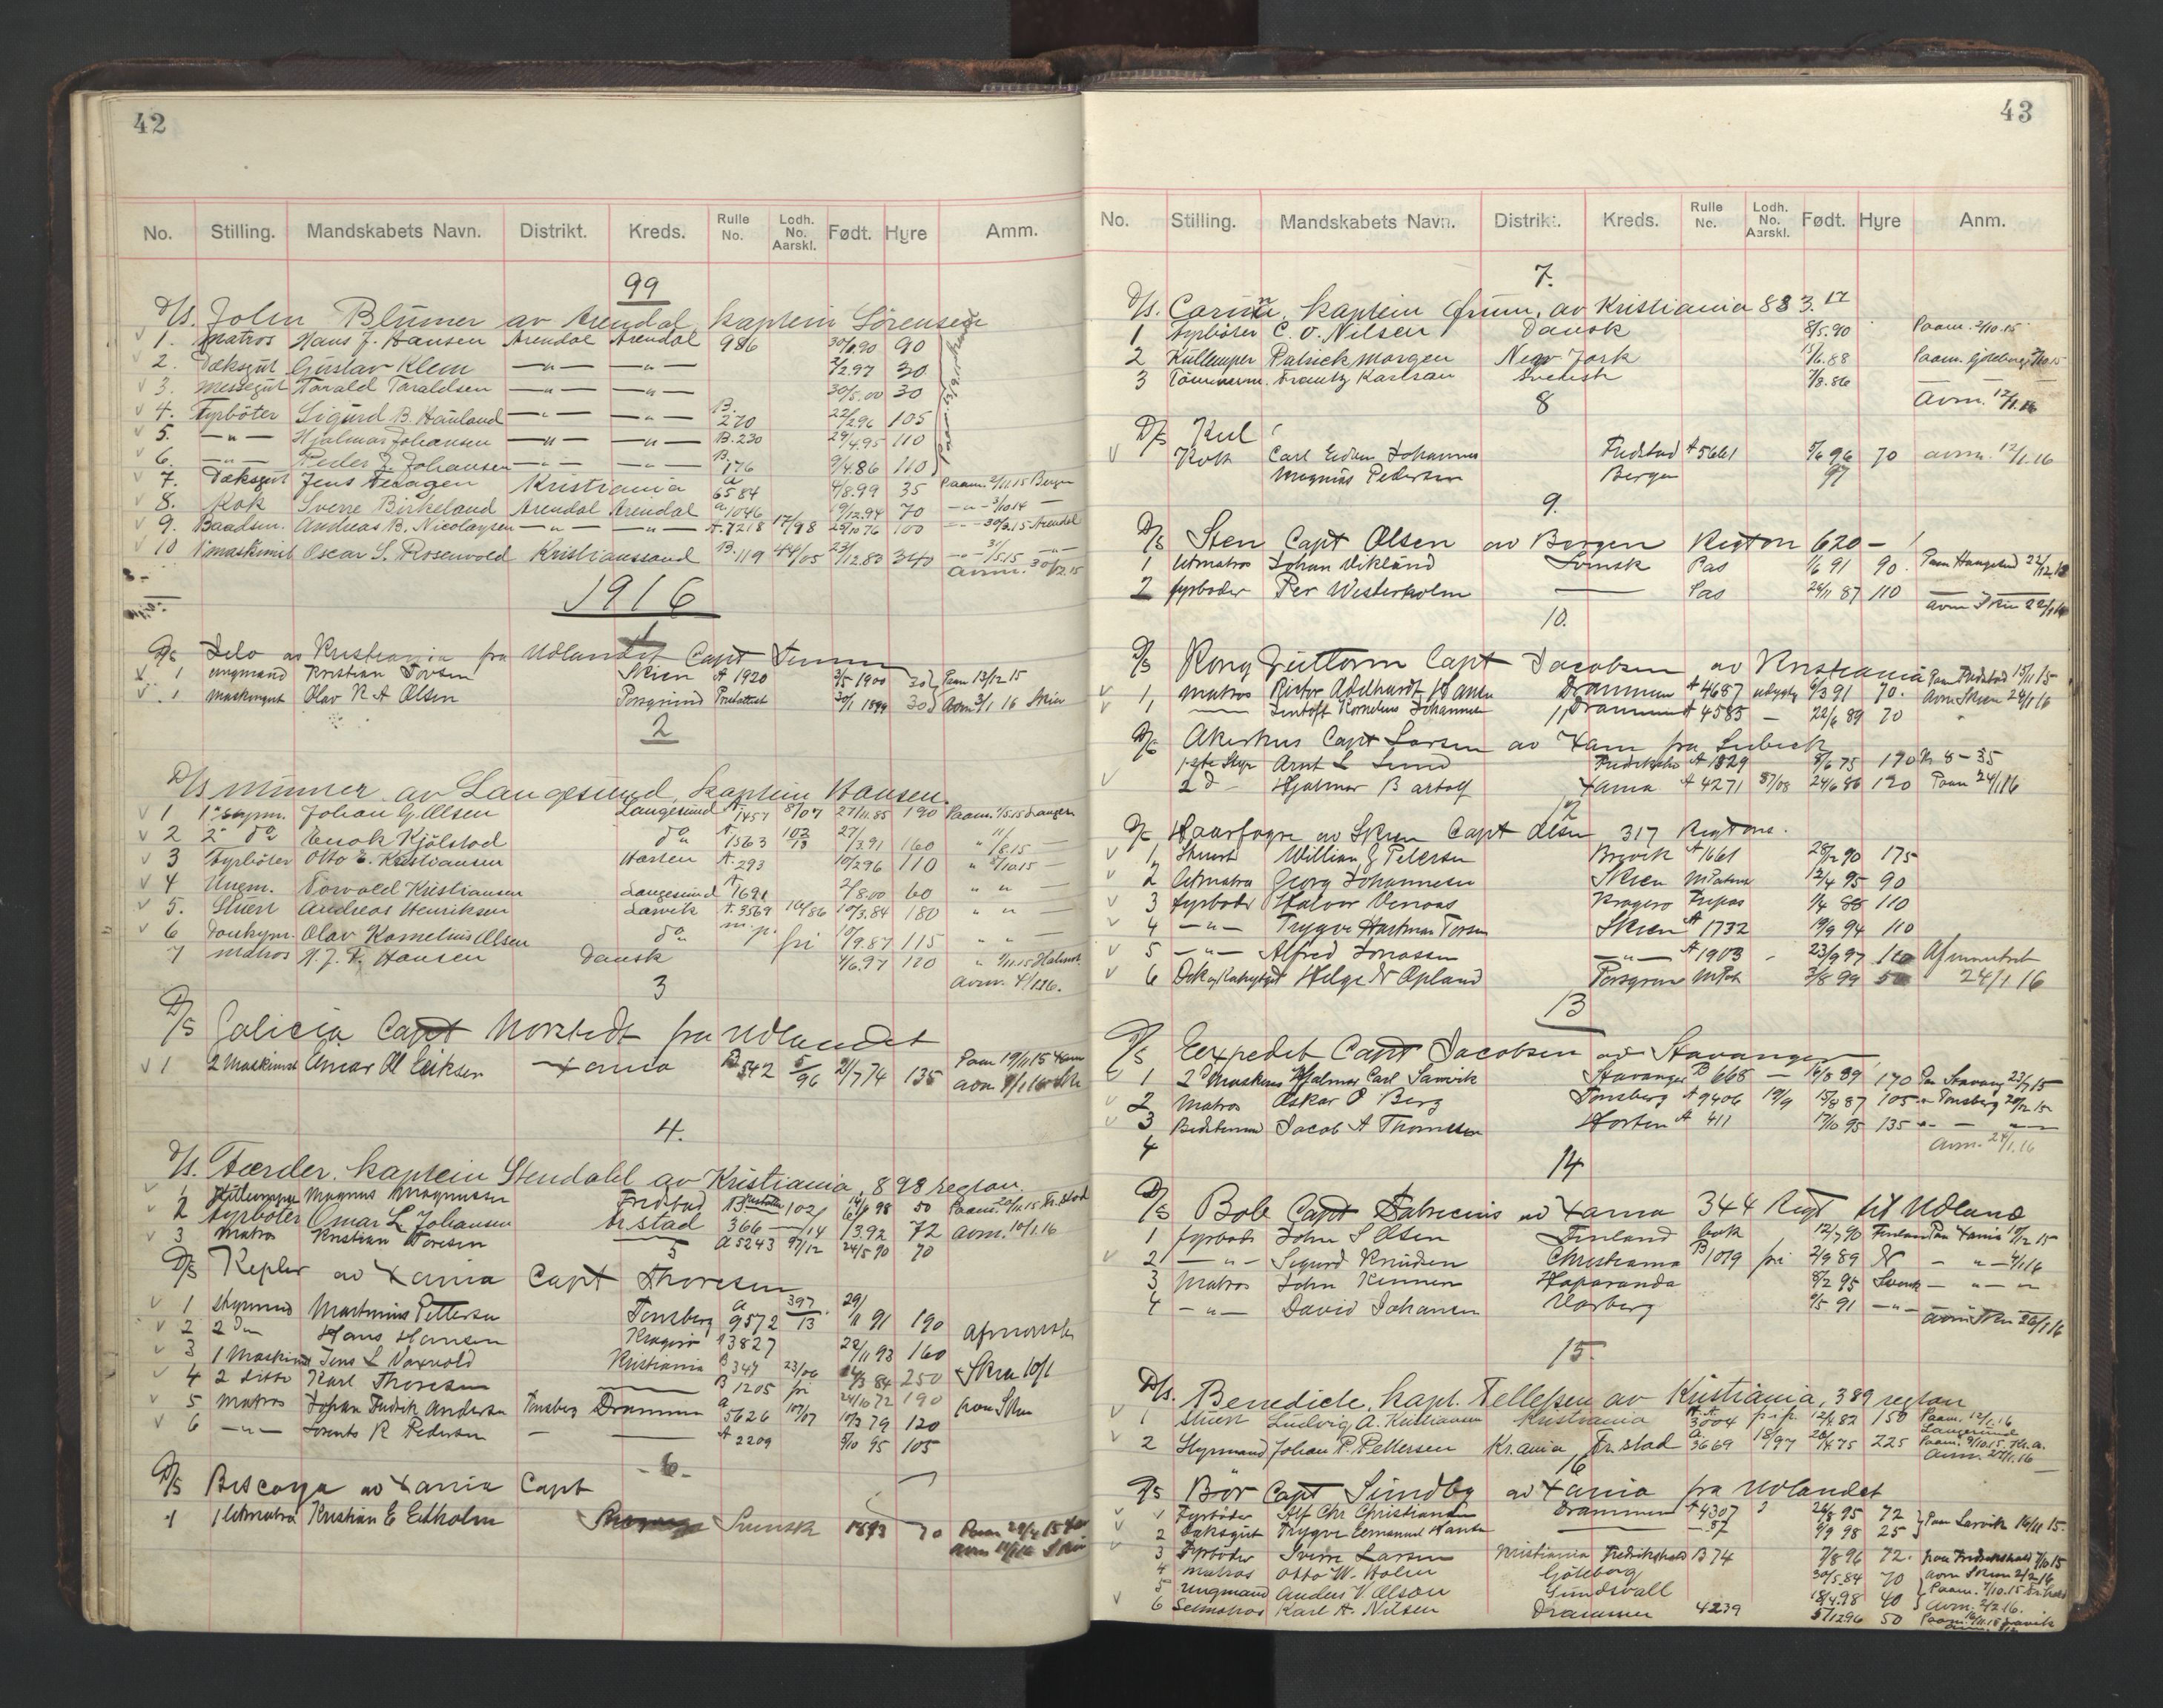 42
No. Stilling. Mandskabets Navn. Distrikt. Kreds. Rulle No. Lodh. No. Aarskl. Født. Hyre Amm.
99
D/S. John Blümer av Arendal, kaptein Sørensen
1. Matros Hans J. Hansen Arendal Arendal 986 30/6.90 90
2. Dæksgut Gustav Klem —"— —"— 2/2.97 30
3. Messegut Torald Toraldsen —"— —"— 30/5.00 30
4. Fyrböter Sigurd B. Hauland —"— —"— B. 270 22/2.96 105
5. —"— Hjalmar Johansen —"— —"— B. 230 29/4.95 110
6. —"— Peder J. Johansen —"— —"— B. 176 9/4.86 110
7. Dæksgut Jens Kristiania a 6584 4/8.99 35 Paam. 2/11.15 Bergen
8. Kok Sverre Birkeland Arendal Arendal a 1046 19/12.94 70 —"— 3/10.14 —
9. Baadsm. Andreas B. Nicolaysen —"— —"— A. 7218 17/98 25/10 76 100 —"— 30/3.15 Arendal
10 1' maskinist Oscar S. Rosenvold Kristianssand B. 119 44/05 23/12.80 340 —"— 31/5.15 —"—
avm. 30/12.15
1916
1
D/S Delo av Kristiania fra Udlandet Capt
1 ungmand Kristian Skien A 1920 3/5 1900 30 Paam 13/12 15
1 Maskingut Olav R A Olsen Porsgrund 30/1 1899 30 Avm 3/1 16 Skien
2
D/S Minner av Langesund, kaptein Hansen.
1 1' Johan G. Olsen Langesund A. 1457 8/07 27/11.85 190 Paam.
2 2' do Enok Kjölstad do A 1563 102/13 27/3.91 160 " 11/8.15 —
3 Fyrböter Otto E. Kristiansen Horten A. 293 10/2 96 110 " 8/10.15 —
4 Ungm. Torvald Kristiansen Langesund A 1691 2/8.00 60 " " —
5. Stuert Andreas Henriksen Larvik A. 3569 16/86 10/3.84 180 " " —
6 Donkym. Olav Kornelius Olsen do m.p. fri 10/9.87 115 " " —
7 Matros H. J. F. Hansen Dansk 4/6.97 120
avm. 4/1.16.
3
D/S Galicia Capt Norstedt fra Udlandet
1 2 Maskinist Einar Ol Eriksen Xania B 542 5/96 2/7 74 135 Paam 19/11 15 Xania
4.
D/S. Færder. kaptein Stendahl av Kristiania, 898 regton.
1 Magnus Magnussen Fredstad 50
2 Fyrböter Omar L. Johansen Fr.stad 366 102/14 6/1 3.92 72 avm. 10/1.16
3 Matros Kristian Toresen a 5243 97/12 24/5 90 70
5
D/S Kepler av Xania Capt Thoresen
1 Styrmand Martinius Pettersen Tønsberg a 9572 397/13 29/11 91 190
2 2 do Hans Hansen Kragerø A 3827 22/11 93 160
3 1 Maskinist Jens L Kristiania B 347 23/06 84 250 Skien 10/1
4 2 ditto Karl Thoresen B 1205 fri 24/10 72 190
5 Matros Johan Fredrik Andersen Tønsberg Drammen a 5626 107/07 10/3 79 120
6 —"— Lorents R Pedersen — A 2209 5/10 95 105
6.
D/S Biscaya av Xania Capt
1 Letmatros Kristian E Edholm Svensk 1893 70
43
No. Stilling. Mandskabets Navn. Distrikt. Kreds. Rulle No. Lodh. No. Aarskl. Født. Hyre Anm.
7.
D/S. Carin, kaptein av Kristiania 883.
1 Fyrböter C. O. Nilsen Dansk 8/5.90 Paam. 2/10.15
2 Kullemper Patrick Morgen New York 15/6.88 Paam. Göteborg
3 Tömmerm. Frantz Karlsen Svensk 7/8.86
Avm. 12/1.16
8
D/S
Kok Carl Johannes Fredstad A 5661 5/6 96 70 avm. 12/1.16
Magnus Pedersen Bergen 97
9.
D/S Sten Capt Olsen av Bergen Regton 620 —
1 Letmatros Johan Wikländ Finsk Pas 1/6 91 90. Paam Haugesund
2 fyrböder Per Westerholm — Pas 24/11 87 110
avm Skien 22/1 16
10.
D/S Kong Guttorm Capt Jacobsen av Kristiania Paam Fredstad 15/11 15
1, Matros Drammen A 4687 6/3 91 70. Avm Skien 24/1 16
Kornelius Johannesen Drammen A 4585 — 22/6 89 70
11
D/S Akershus Capt Larsen av Xania fra Lübeck
1ste Styr Arnt L Lund Fredrikshald A 1829 8/6 75 170
2 d — Hjalmar Bartolf Xania A 4271 87/08 24/6 86 120 Paam 24/1 16
12
D/S Haarfagre av Skien Capt Olsen 317 Regtons.
1 Stuert William G Petersen Brevik A 1661 28/2 90 175
2 Letmatros Georg Johannesen Skien 12/4 95 90
3 fyrböder Halvor Kragerø 1/4 88 110
4 —"— Trygve Hartman Skien A 1732 19/9 94 110
5 —"— Alfred Jonassen —"— A 1903 23/9 97 110 Afmønstret
6 Helge N Opland Porsgrun 3/8 99 50 24/1 16
13
D/S Expedit Capt Jacobsen av Stavanger
1 2 Maskinist Hjalmar Carl Stavanger B 668 — 16/8 89 170 Paa Stavang
2 Matros Oskar O Berg Tønsberg A 9406 19/9 15/8 87 105 " Tønsberg 20/12 15
3 Jacob A Thomesen Horten A 411 17/10 95 135 " — —"—
4 Avm. 24/1.16
14
D/S Bob Capt Fabricius av Xania 344 Regt til Udland
1 fyrböder John S Olsen Finland bok 12/7 90
2 —"— Sigurd Knudsen Christiania B 1019 fri 2/9 89 N — "— 4/1 16
3 Matros John Kinnen Haparanda 8/2 95 Svensk — "—"
4 —"— David Johansen Varberg 5 91 —"—
avm Skien 26/1 16
15.
D/S. Benedicte, kapt. Tellefsen av Kristiania, 389 regton
1 Stuert Ludvig A. Kristiansen Kristiania A. 3004 12/2 82 150 Paam. 12/1.16
Langesund
2 Styrmand Johan P. Pettersen Kr.ania Fr.stad a. 3669 18/97 75 225 Paam. 9/10.15. Kr.a.
avm. 27/1.16
16
D/S Bör Capt Sundby av Xania fra Udlandet
1 Fyrböder Alf Chr Christiansen Drammen A 4307 2 26/8 95 72 Paam Larvik 16/11 15.
2 Dæksgut Trygve Emanuel Hansen — 9/9 98 25
3 Fyrböder Sverre Larsen Kristiania Fredrikshald B 74 7/8 96 72. paam Fredrikshald 7/10 15
4 Matros Otto W. Holm Göteborg 30/5.84 70 avm Skien 2/2 16
5 Ungmand Anders V. Olson Sundsvall 18/4.98 40 Paam. 7/10.15 Fr.hald
avm. 2/2 16.
6 Karl A. Nilsen Drammen 4239 5/12 96 50